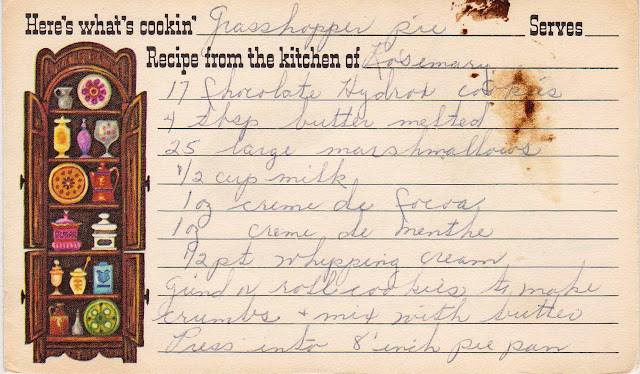 Here's what's cookin' Grasshopper pie Serves
Recipe from the kitchen of Rosemary
17 Chocolate Hydrox cookies
4 tbsp butter melted
25 large marshmallows
1/2 cup milk
1 oz creme de Cocoa
1 oz creme de menthe
1/2 pt whipping cream
Grind or roll cookies to make
crumbs + mix with butter
Press into 8 inch pie pan